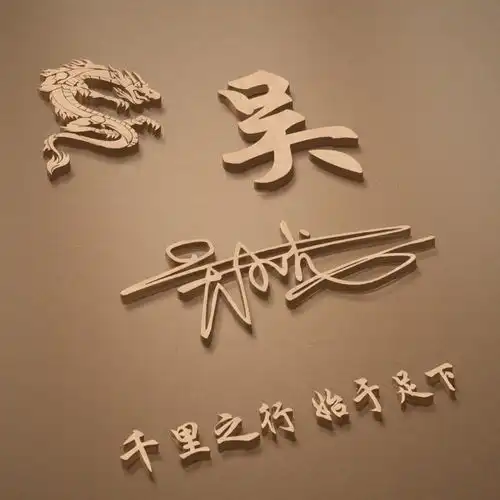 吴
千里之行 始于足下